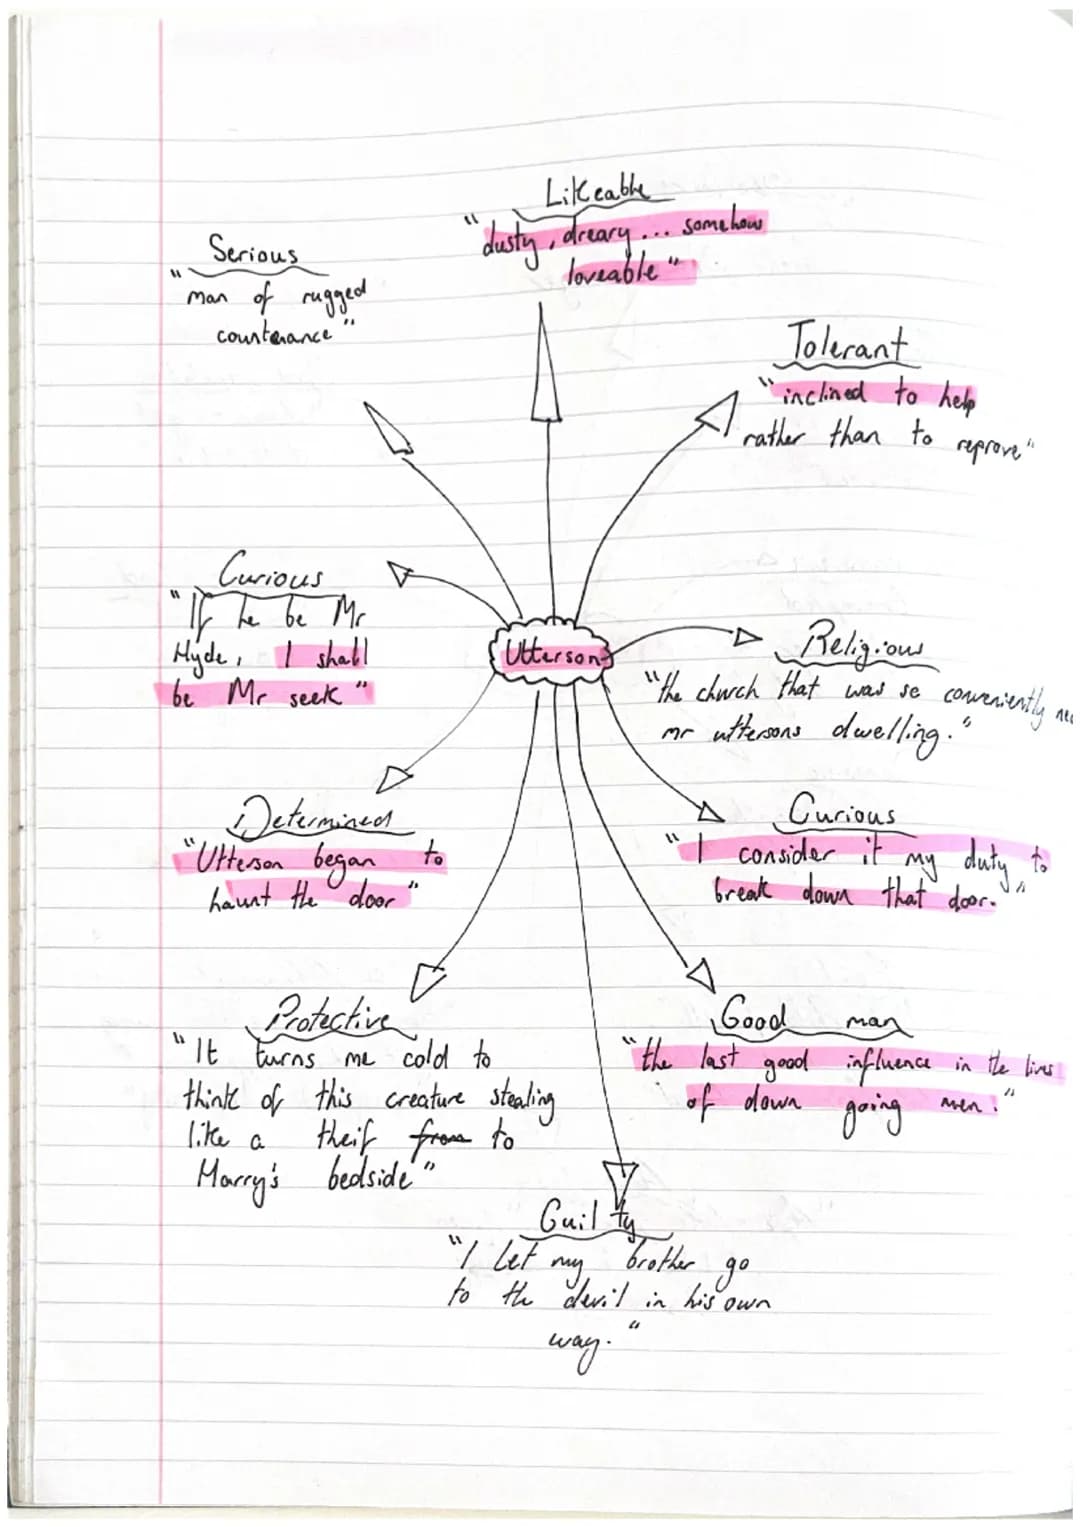 Likeable
"dusty, dreary... somehow
loveable"
Serious
"man of rugged
countenance"
Tolerant
"inclined to help
rather than to reprove"
Curious
"If he be Mr
Hyde, I shall
be Mr seek"
Utterson
Religious
"the church that was so conveniently
mr uttersons dwelling."
Determined
"Utterson began to
haunt the door"
Curious
"I consider it my duty to
break down that door."
Protective
"It turns me cold to
think of this creature stealing
like a theif from to
Harry's bedside"
Good man
"the last good influence in the lives
of down going men."
Guilty
"I let my brother go
to the devil in his own
way."